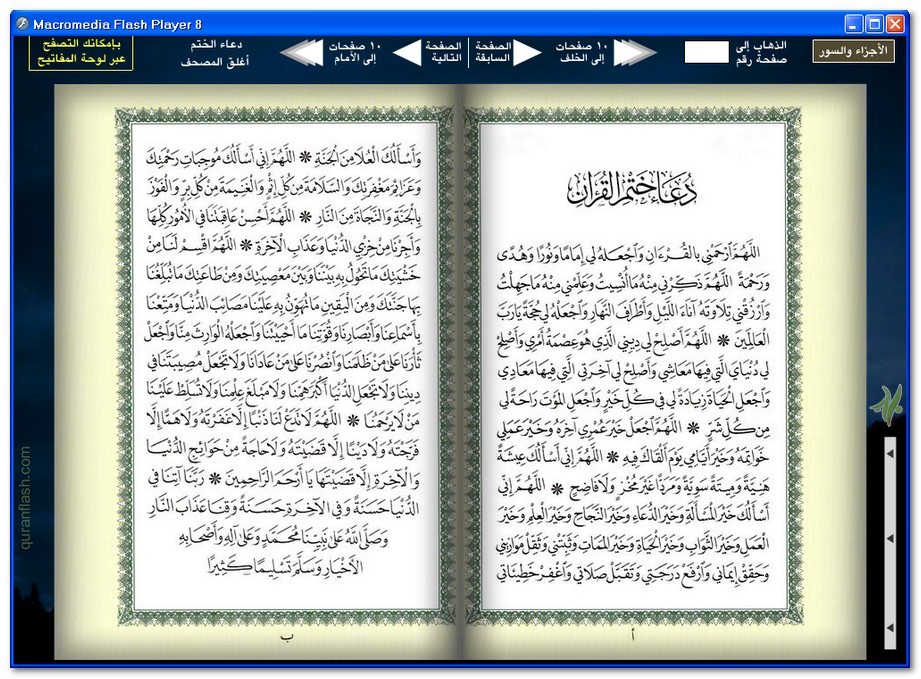 Macromedia Flash Player 8
الأجزاء والسور
الذهاب إلى
صفحة رقم
١٠ صفحات
إلى الخلف
الصفحة
السابقة
الصفحة
التالية
١٠ صفحات
إلى الأمام
دعاء الختم
أغلق المصحف
بإمكانك التصفح
عبر لوحة المفاتيح
دُعَاءُ خَتْمِ الْقُرْآنِ
اللَّهُمَّ ارْحَمْنِي بِالْقُرْءَانِ وَاجْعَلْهُ لِي إِمَامًا وَنُورًا وَهُدًى
وَرَحْمَةً اللَّهُمَّ ذَكِّرْنِي مِنْهُ مَا أُنْسِيتُ وَعَلِّمْنِي مِنْهُ مَا جَهِلْتُ
وَارْزُقْنِي تِلَاوَتَهُ آنَاءَ اللَّيْلِ وَأَطْرَافَ النَّهَارِ وَاجْعَلْهُ لِي حُجَّةً يَارَبَّ
الْعَالَمِينَ * اللَّهُمَّ أَصْلِحْ لِي دِينِي الَّذِي هُوَ عِصْمَةُ أَمْرِي وَأَصْلِحْ
لِي دُنْيَايَ الَّتِي فِيهَا مَعَاشِي وَأَصْلِحْ لِي آخِرَتِي الَّتِي فِيهَا مَعَادِي
وَاجْعَلِ الْحَيَاةَ زِيَادَةً لِي فِي كُلِّ خَيْرٍ وَاجْعَلِ الْمَوْتَ رَاحَةً لِي
مِنْ كُلِّ شَرٍّ * اللَّهُمَّ اجْعَلْ خَيْرَ عُمْرِي آخِرَهُ وَخَيْرَ عَمَلِي
خَوَاتِمَهُ وَخَيْرَ أَيَّامِي يَوْمَ أَلْقَاكَ فِيهِ * اللَّهُمَّ إِنِّي أَسْأَلُكَ عِيشَةً
هَنِيَّةً وَمِيتَةً سَوِيَّةً وَمَرَدًّا غَيْرَ مُخْزٍ وَلَا فَاضِحٍ * اللَّهُمَّ إِنِّي
أَسْأَلُكَ خَيْرَ الْمَسْأَلَةِ وَخَيْرَ الدُّعَاءِ وَخَيْرَ النَّجَاحِ وَخَيْرَ الْعِلْمِ وَخَيْرَ
الْعَمَلِ وَخَيْرَ الثَّوَابِ وَخَيْرَ الْحَيَاةِ وَخَيْرَ الْمَمَاتِ وَثَبِّتْنِي وَثَقِّلْ مَوَازِينِي
وَحَقِّقْ إِيمَانِي وَارْفَعْ دَرَجَتِي وَتَقَبَّلْ صَلَاتِي وَاغْفِرْ خَطِيئَاتِي
أ
وَأَسْأَلُكَ الْعُلَا مِنَ الْجَنَّةِ * اللَّهُمَّ إِنِّي أَسْأَلُكَ مُوجِبَاتِ رَحْمَتِكَ
وَعَزَائِمَ مَغْفِرَتِكَ وَالسَّلَامَةَ مِنْ كُلِّ إِثْمٍ وَالْغَنِيمَةَ مِنْ كُلِّ بِرٍّ وَالْفَوْزَ
بِالْجَنَّةِ وَالنَّجَاةَ مِنَ النَّارِ * اللَّهُمَّ أَحْسِنْ عَاقِبَتَنَا فِي الْأُمُورِ كُلِّهَا
وَأَجِرْنَا مِنْ خِزْيِ الدُّنْيَا وَعَذَابِ الْآخِرَةِ * اللَّهُمَّ اقْسِمْ لَنَا مِنْ
خَشْيَتِكَ مَا تَحُولُ بِهِ بَيْنَنَا وَبَيْنَ مَعْصِيَتِكَ وَمِنْ طَاعَتِكَ مَا تُبَلِّغُنَا
بِهَا جَنَّتَكَ وَمِنَ الْيَقِينِ مَا تُهَوِّنُ بِهِ عَلَيْنَا مَصَائِبَ الدُّنْيَا وَمَتِّعْنَا
بِأَسْمَاعِنَا وَأَبْصَارِنَا وَقُوَّتِنَا مَا أَحْيَيْتَنَا وَاجْعَلْهُ الْوَارِثَ مِنَّا وَاجْعَلْ
ثَأْرَنَا عَلَى مَنْ ظَلَمَنَا وَانْصُرْنَا عَلَى مَنْ عَادَانَا وَلَا تَجْعَلْ مُصِيبَتَنَا فِي
دِينِنَا وَلَا تَجْعَلِ الدُّنْيَا أَكْبَرَ هَمِّنَا وَلَا مَبْلَغَ عِلْمِنَا وَلَا تُسَلِّطْ عَلَيْنَا
مَنْ لَا يَرْحَمُنَا * اللَّهُمَّ لَا تَدَعْ لَنَا ذَنْبًا إِلَّا غَفَرْتَهُ وَلَا هَمًّا إِلَّا
فَرَّجْتَهُ وَلَا دَيْنًا إِلَّا قَضَيْتَهُ وَلَا حَاجَةً مِنْ حَوَائِجِ الدُّنْيَا
وَالْآخِرَةِ إِلَّا قَضَيْتَهَا يَا أَرْحَمَ الرَّاحِمِينَ * رَبَّنَا آتِنَا فِي
الدُّنْيَا حَسَنَةً وَفِي الْآخِرَةِ حَسَنَةً وَقِنَا عَذَابَ النَّارِ
وَصَلَّى اللَّهُ عَلَى نَبِيِّنَا مُحَمَّدٍ وَعَلَى آلِهِ وَأَصْحَابِهِ
الْأَخْيَارِ وَسَلَّمَ تَسْلِيمًا كَثِيرًا
ب
quranflash.com